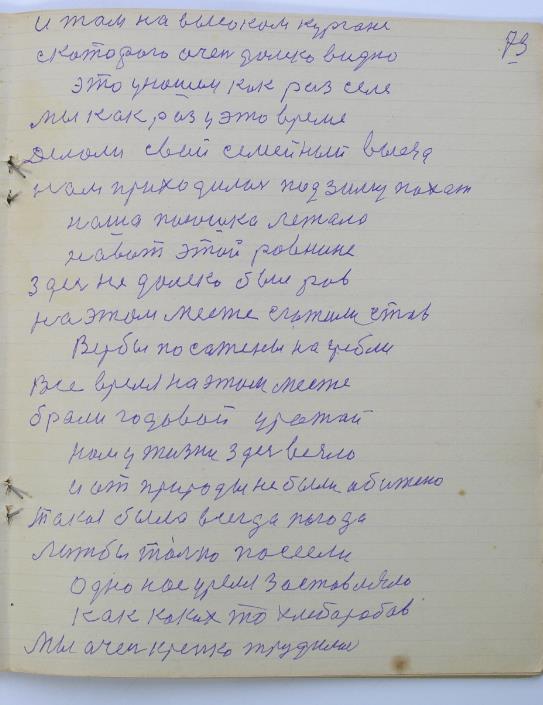 73
и там на высоком кургане
скоторого очен далеко видно
это унашем как раз селе
мы как раз у это время
Делали свой семейный выезд
нам приходилас подзиму пахат
наша пашишка лежала
на вот этой равнине
здес не далеко был ров
на этом месте сложили став
Вербы посажены на гребли
Все время на этом месте
брали годовой урожай
нам у жизни здес везло
и от природы не были абижено
такая была всегда погода
лежбы толко посеели
Одно нас уремя заставляло
как каких то хлебаробав
Мы очен крепко трудилис